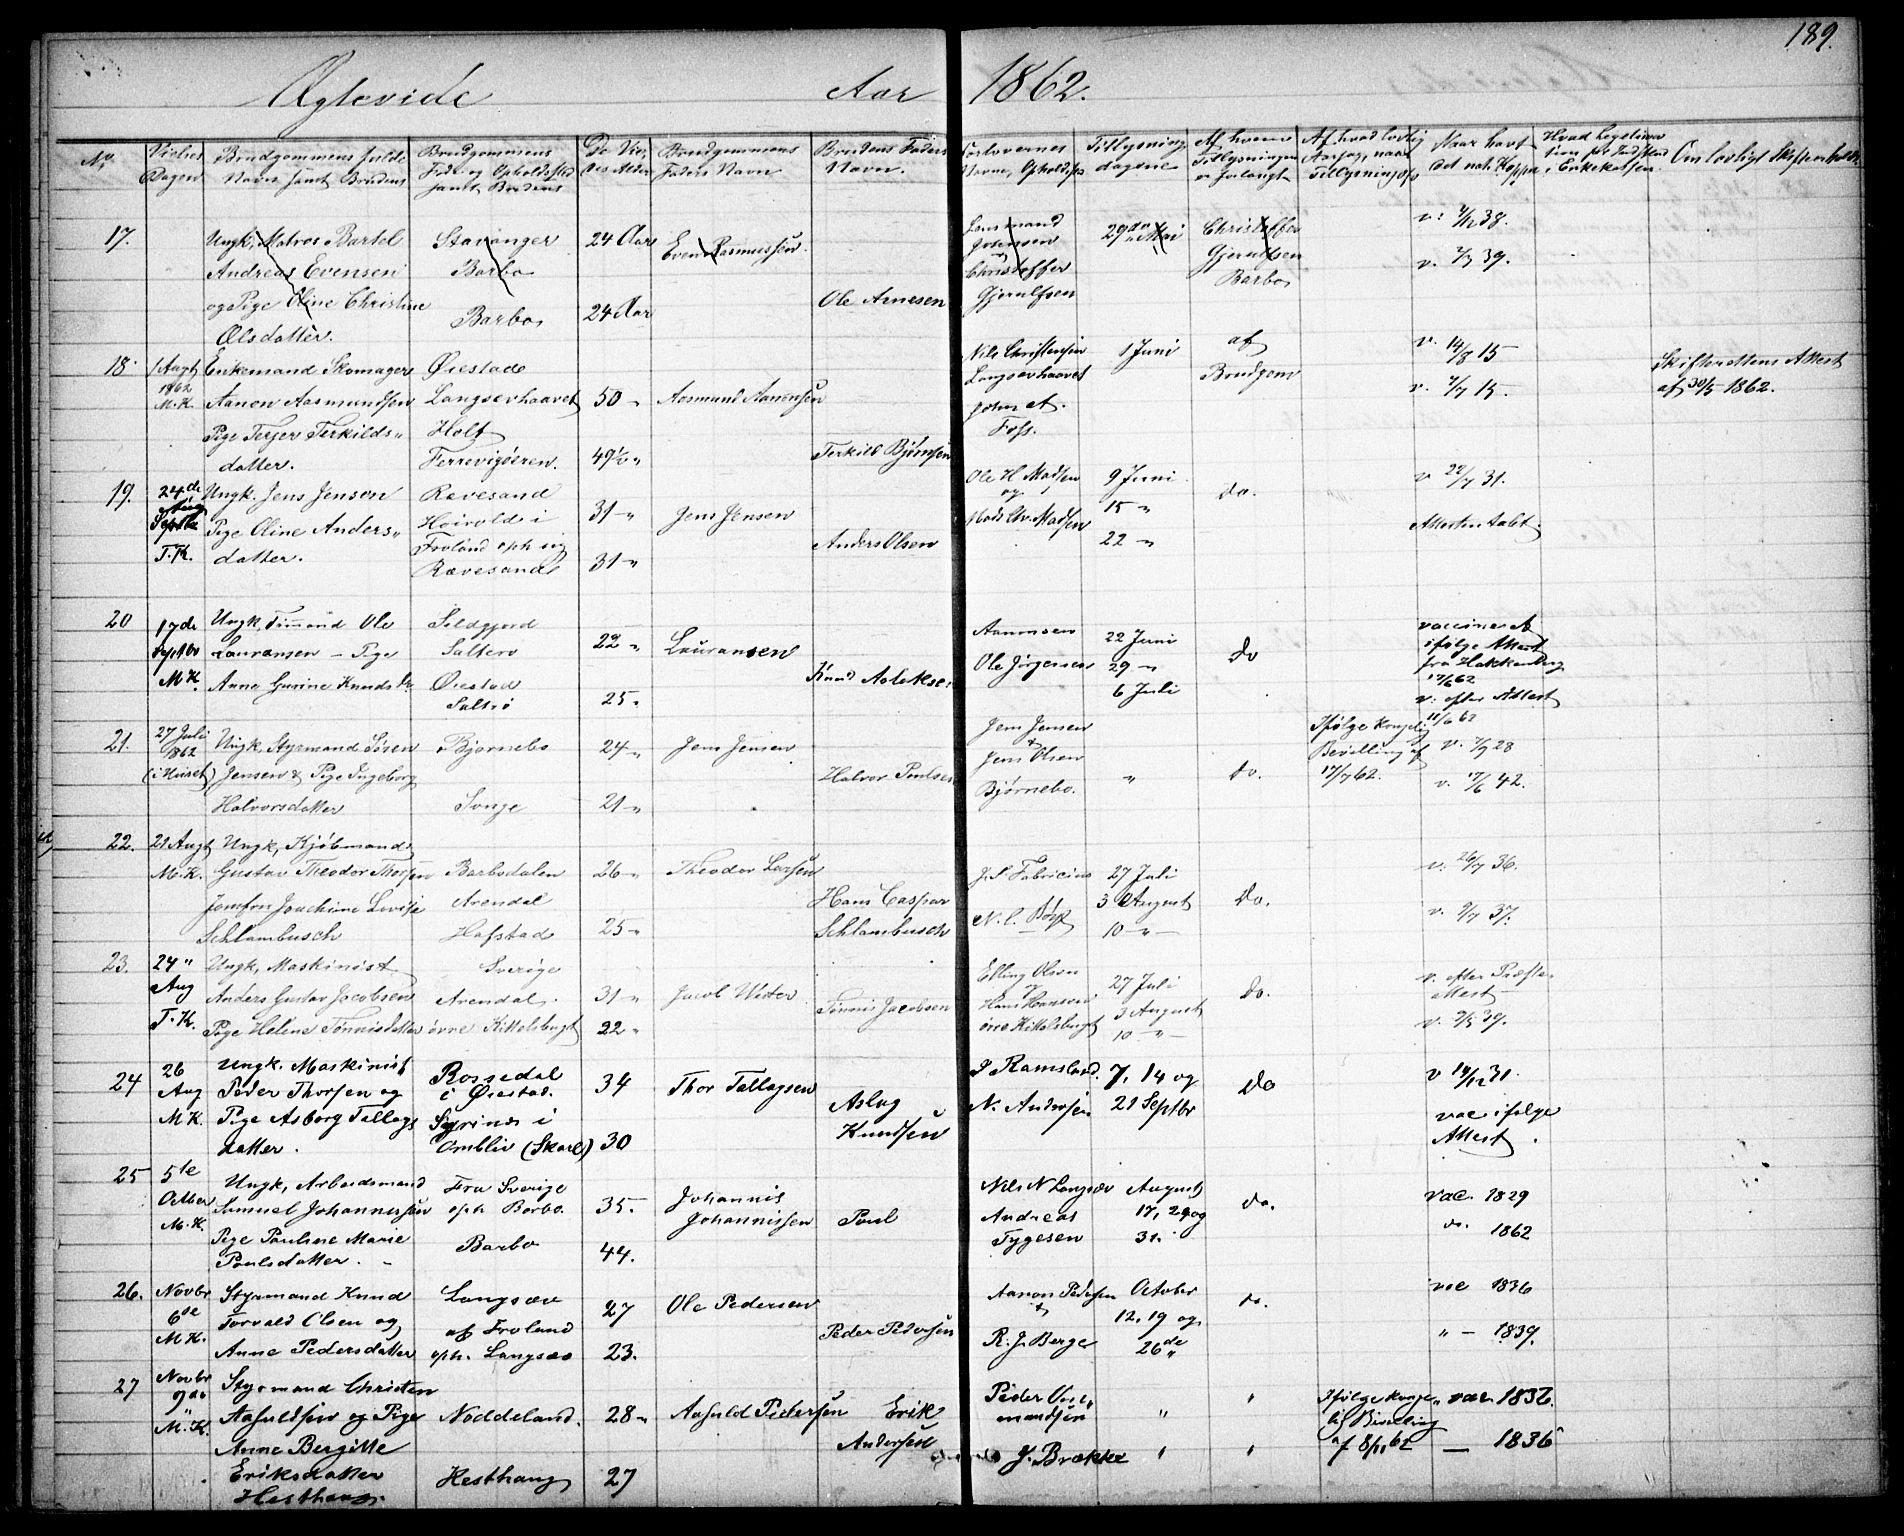 189.
Ægtevide Aar 1862.
No.
Vielses Dagen
Brudgommens fulde Navn samt Brudens
Brudgommens Føde og Opholdssted samt Brudens
De Vies Alder
Brudgommens Faders Navn
Brudens Faders Navn.
Forlovernes Navne, Opholdssted
Tillysnings dagene
Af hvem Tillysningen er forlangt
Naar havt det nat. Kopper
Om lovligt Skifte
17.
Ungk, Matros Bartel Stavanger 24 Aar
Andreas Evensen Barbo Even Rasmussen.
og Pige Oline Christine Barbo, 24 Aar Ole Arnesen
Olsdatter.
Lensmand Johnsen og Christoffer Gjerulfsen
29de Mai
Christoffer Gjerulfsen Barbo
v. 39.
18. 1 Augt 1862 M.K.
Enkemand Skomager Øiestad
Aanon Aasmundsen Langsævhaavet 50 " Aasmund Aanonsen
Pige Terjer Terkilds- Holt
datter. Ferrevigøeren. 49½ " Terkild Bjørnsen
Nils Christensen Langsævhaavet
Foss.
1 Juni
af Brudgom
v. 14/8 15
v. 15.
Skifterettens Attest
af 30/5 1862.
19. 24de Aug T.K.
Ungk. Jens Jenson Ravesand 31 " Jens Jensen
Pige Oline Anders- Froland oph sig
datter. Rævesand 31 " Anders Olsen
Ole H Madsen og Mads Chr. Madsen
9 Juni
15 "
22 "
do.
v 22/7 31.
Attesten tabt.
20 17de Septbr M.K.
Ungk, Tømmd Ole 22 " Lauransen
Lauransen - Pige Salterø
Anne Gurine Knudsdr Øiestad
Saltrø 25 " Knud Aslaksen
Aanonsen
Ole Jørgensen
22 Juni
29 "
6 Juli
Do
vaccineret
ifølge Attest
fra Hakkenberg
17/6 62
v. efter Attest
11/6 62
21. 27 Juli 1862 (i Huset)
Ungk, Styrmand Søren Bjørnebo 24 " Jens Jensen
Jensen & Pige Ingeborg Halvor Poulsen
Halvorsdatter Songe 21 "
Jens Jensen
&
Jens Olsen
Bjørnebo.
"
do.
Ifølge Kongelig
Bevilling af
17/7 62.
v. 7/9 28
v. 17/6 42.
22. 21 Augt M.K.
Ungk, Kjøbmand
Gustav Theodor Thorsen Barbodalen 26 " Theodor Larsen
Jomfru Joachime Lovise Arendal Hans Caspar
Schlambusch Hafstad 25 " Schlambusch
J. S. Fabricius
27 Juli
3 August
10 "
Do.
v. 26/7 36.
v. 9/7 37.
23. 24 " Aug T.K.
Ungk, Maskinist Sverige
Anders Gustav Jacobsen Arendal. 31 " Jacob Wester
Pige Helene Tønnisdatter øvre Kittelsbugt 22 " Tønnis Jacobsen
Elling Olsen
og
Hans Hansen
øvre Kittelsbugt
27 Juli
3 August
10 "
Do.
v. efter Præste
Attest
v. 9/5 39.
24 26 Aug M.K.
Ungk. Maskinist Rossedal 34 Thor Tellagsen
Peder Thorsen og i Øiestad.
Pige Asborg Tellags Aslag
datter. Omblie (Skarl) 30 Knudsen
P Ramsland.
N. Andersen
7, 14 og
21 Septbr
Do
v 14/12 31.
vac ifølge
Attest.
25 5te Octber M.K.
Ungk, Arbeidsmand Fra Sverige
Samuel Johannessen oph Barbo. 35. Johannis Johannissen
Pige Pauline Marie Barbo 44. Poul
Poulsdatter.
Nils N Langsæv
Andreas
Tygesen
August
17, 29 og
31.
do.
vac. 1829
do. 1862
26. Novbr 6te M.K.
Styrmand Knud Langsæv 27 Ole Pedersen
Torvald Olsen og af Froland
Anne Pedersdatter oph. Langsæv 23. Peder Pedersen
Aanon Pedersen
&
R. J. Berge
October
12, 19 og
26de "
do.
vac 1836
" - 1839.
27 Novbr 9de " M.K.
Styrmand Christen
Aasuldsen og Pige Noddeland. 28 " Aasuld Pedersen Erik
Anne Bergitte Andersen
Eriksdatter Hesthaug 27
Hesthaug.
Peder
mandsen
J. Brække
Ifølge Konge-
lig Bevilling
af 8/11 62
vac. 1836.
— 1836